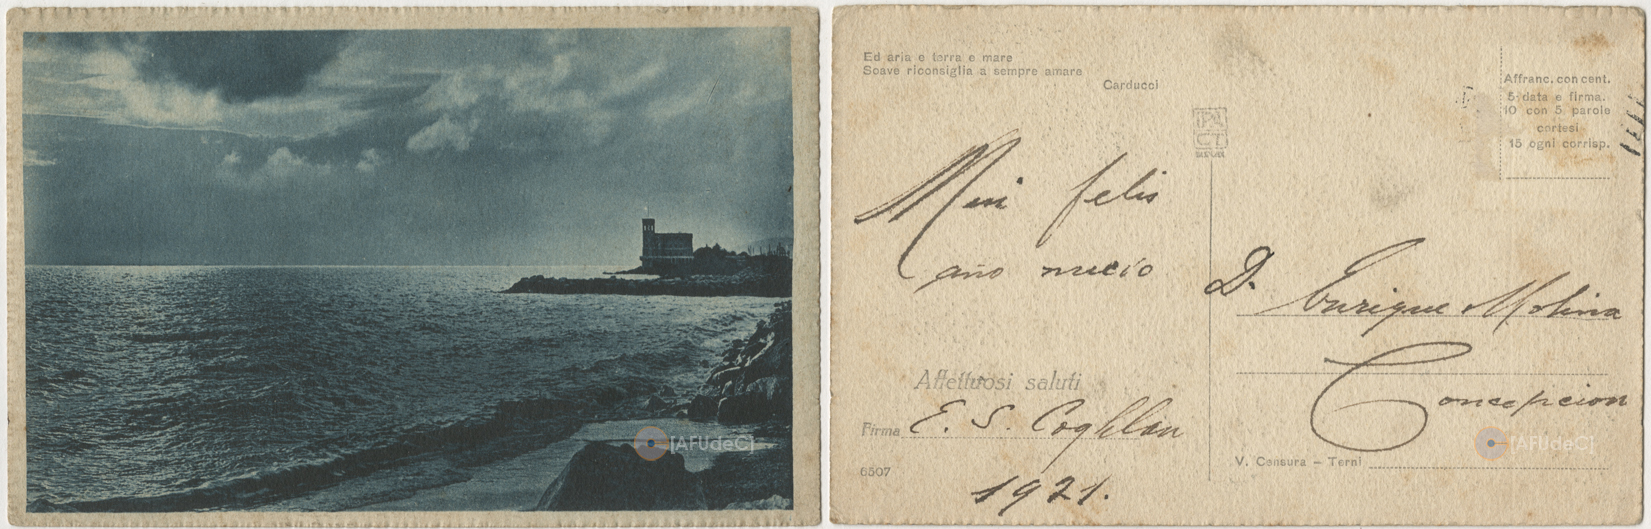 [AFUdeC]
Ed aria e terra e mare
Soave riconsiglia a sempre amare
Carducci
Affranc. con cent.
5 data e firma.
10 con 5 parole
cortesi
15 ogni corrisp.
Mui felis
año nuevo
D. Enrique Molina
Concepcion
Affettuosi saluti
Firma E. S. Coghlan
1921.
6507
V. Censura – Terni
[AFUdeC]